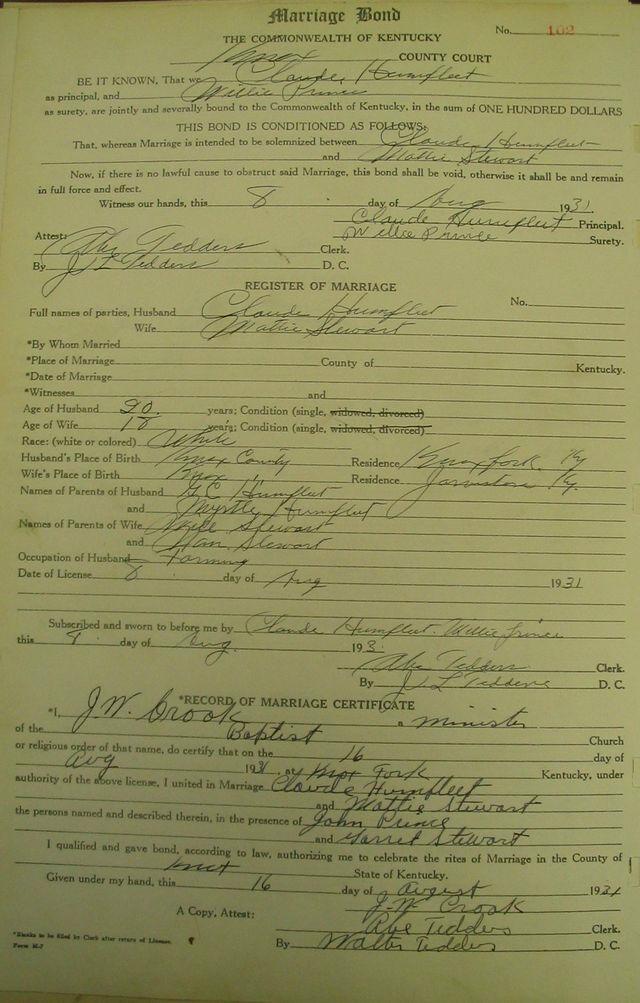 Marriage Bond
No. 102
THE COMMONWEALTH OF KENTUCKY
Knox COUNTY COURT
BE IT KNOWN, That we Claude Humfleet
as principal, and Willie Prince
as surety, are jointly and severally bound to the Commonwealth of Kentucky, in the sum of ONE HUNDRED DOLLARS
THIS BOND IS CONDITIONED AS FOLLOWS:
That, whereas Marriage is intended to be solemnized between Claude Humfleet
and Mattie Stewart
Now, if there is no lawful cause to obstruct said Marriage, this bond shall be void, otherwise it shall be and remain
in full force and effect.
Witness our hands, this 8 day of Aug 1931.
Claude Humfleet Principal.
Willie Prince Surety.
Attest: Abe Tedders Clerk.
By J L Tedders D. C.
REGISTER OF MARRIAGE
No.
Full names of parties, Husband Claude Humfleet
Wife Mattie Stewart
*By Whom Married
*Place of Marriage County of Kentucky.
*Date of Marriage
*Witnesses and
Age of Husband 20. years; Condition (single, widowed, divorced)
Age of Wife 18 years; Condition (single, widowed, divorced)
Race: (white or colored) White
Husband's Place of Birth Knox County Residence Knox fork, Ky
Wife's Place of Birth Knox " Residence Ky.
Names of Parents of Husband Humfleet
and Myrtle Humfleet
Names of Parents of Wife Stewart
and Stewart
Occupation of Husband Farming
Date of License 8 day of Aug 1931
Subscribed and sworn to before me by Claude Humfleet. Willie Prince
this 8 day of Aug. 193
Abe Tedders Clerk.
By J L Tedders D. C.
*RECORD OF MARRIAGE CERTIFICATE
*I, J.W. Crook a minister
of the Baptist Church
or religious order of that name, do certify that on the 16 day of
Aug 1931, at Knox Fork Kentucky, under
authority of the above license, I united in Marriage Claude Humfleet
and Mattie Stewart
the persons named and described therein, in the presence of John Prince
and Stewart
I qualified and gave bond, according to law, authorizing me to celebrate the rites of Marriage in the County of
Knox State of Kentucky.
Given under my hand, this 16 day of August 1931
J.W. Crook
A Copy, Attest: Abe Tedders Clerk.
By Walter Tedders D. C.
*Blanks to be filled by Clerk after return of License.
Form M-7